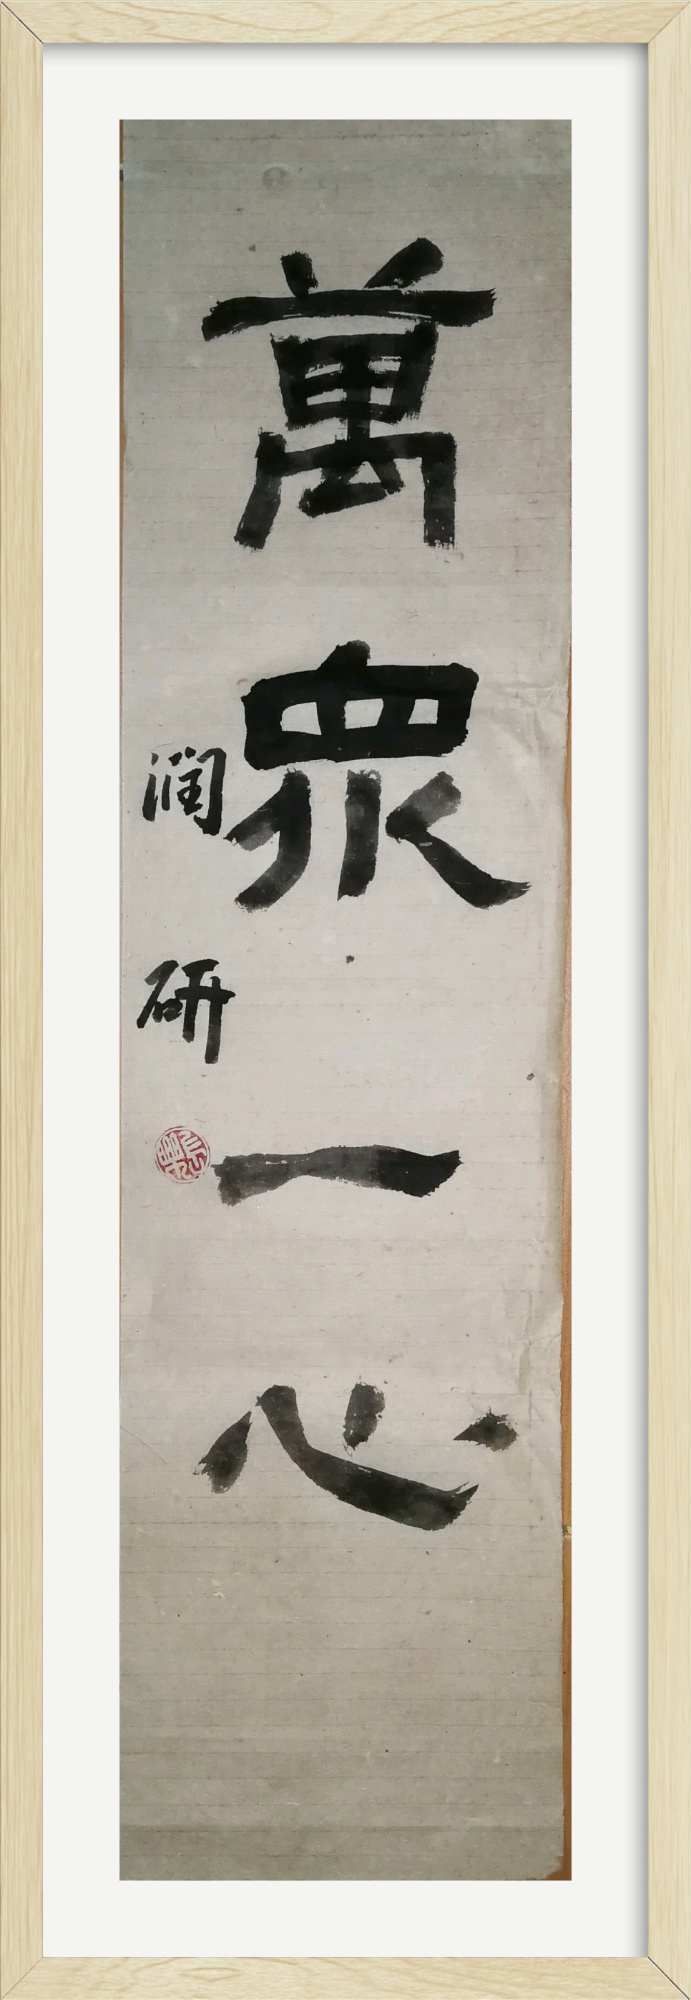 萬眾一心
润研